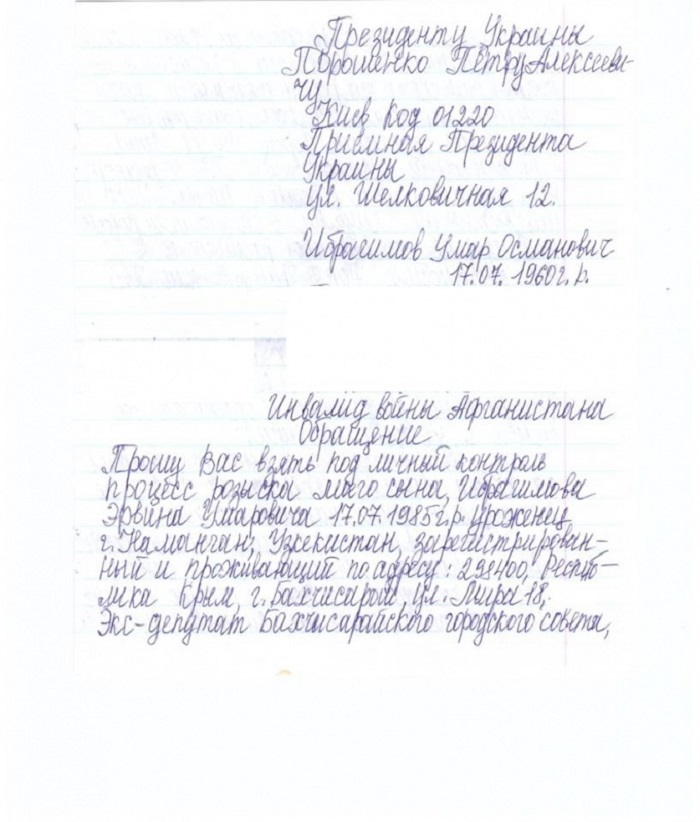 Президенту Украины
Порошенко Петру Алексееви-
чу
Киев код 01220
Приёмная Президента
Украины
ул. Шелковичная 12.
Ибрагимов Умар Османович
17.07.1960г.р.
Инвалид войны Афганистана
Обращение
Прошу Вас взять под личный контроль
процесс розыска моего сына, Ибрагимова
Эрвина Умаровича 17.07.1985г.р. уроженец
г. Наманган, Узбекистан, зарегистрирован-
ный и проживающий по адресу: 298400, Респуб-
лика Крым, г. Бахчисарай, ул. Мира 18,
Экс-депутат Бахчисарайского городского совета,